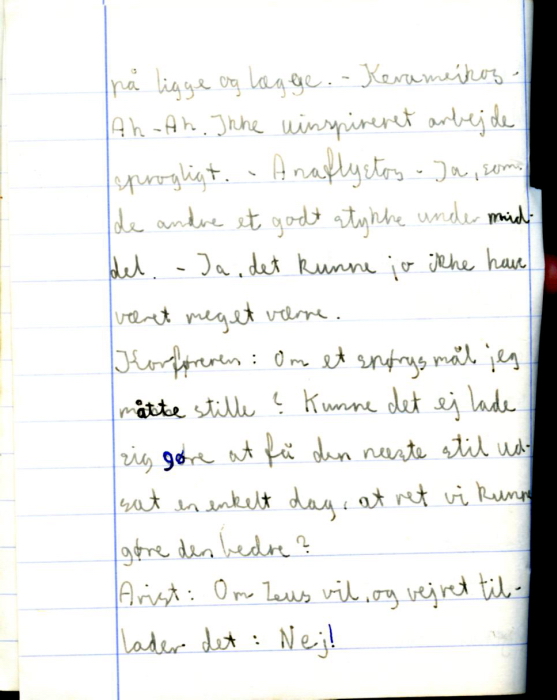 på ligge og lægge. - Kerameikos -
Ah - Ah. Ikke uinspireret arbejde
sprogligt. - Anaflystos - Ja, som
de andre et godt stykke under mid-
del. - Ja, det kunne jo ikke have
været meget værre.
Korføreren: Om et spørgsmål jeg
måtte stille? Kunne det ej lade
sig gøre at få den næste stil ud-
sat en enkelt dag, at ret vi kunne
gøre den bedre?
Arist: Om Zeus vil, og vejret til-
lader det: Nej!